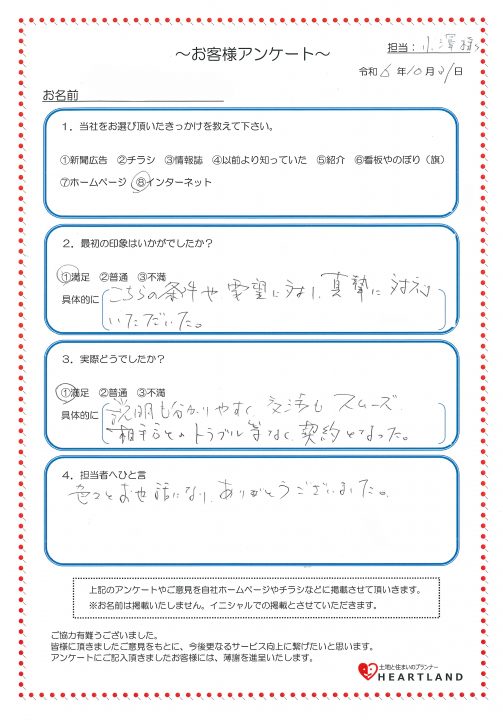 ～お客様アンケート～
担当：小澤様
令和 6 年 10 月 21 日
お名前
1．当社をお選び頂いたきっかけを教えて下さい。
①新聞広告 ②チラシ ③情報誌 ④以前より知っていた ⑤紹介 ⑥看板やのぼり（旗）
⑦ホームページ ⑧インターネット
2．最初の印象はいかがでしたか？
①満足 ②普通 ③不満
具体的に こちらの条件や要望に対し、真摯に対応
いただいた。
3．実際どうでしたか？
①満足 ②普通 ③不満
具体的に 説明も分かりやすく、交渉もスムーズ
相手方とのトラブル等なく契約となった。
4．担当者へひと言
色々とお世話になり、ありがとうございました。
上記のアンケートやご意見を自社ホームページやチラシなどに掲載させて頂いきます。
※お名前は掲載いたしません。イニシャルでの掲載とさせていただきます。
ご協力有難うございました。
皆様に頂きましたご意見をもとに、今後更なるサービス向上に繋げたいと思います。
アンケートにご記入頂きましたお客様には、薄謝を進呈いたします。
土地と住まいのプランナー
HEARTLAND